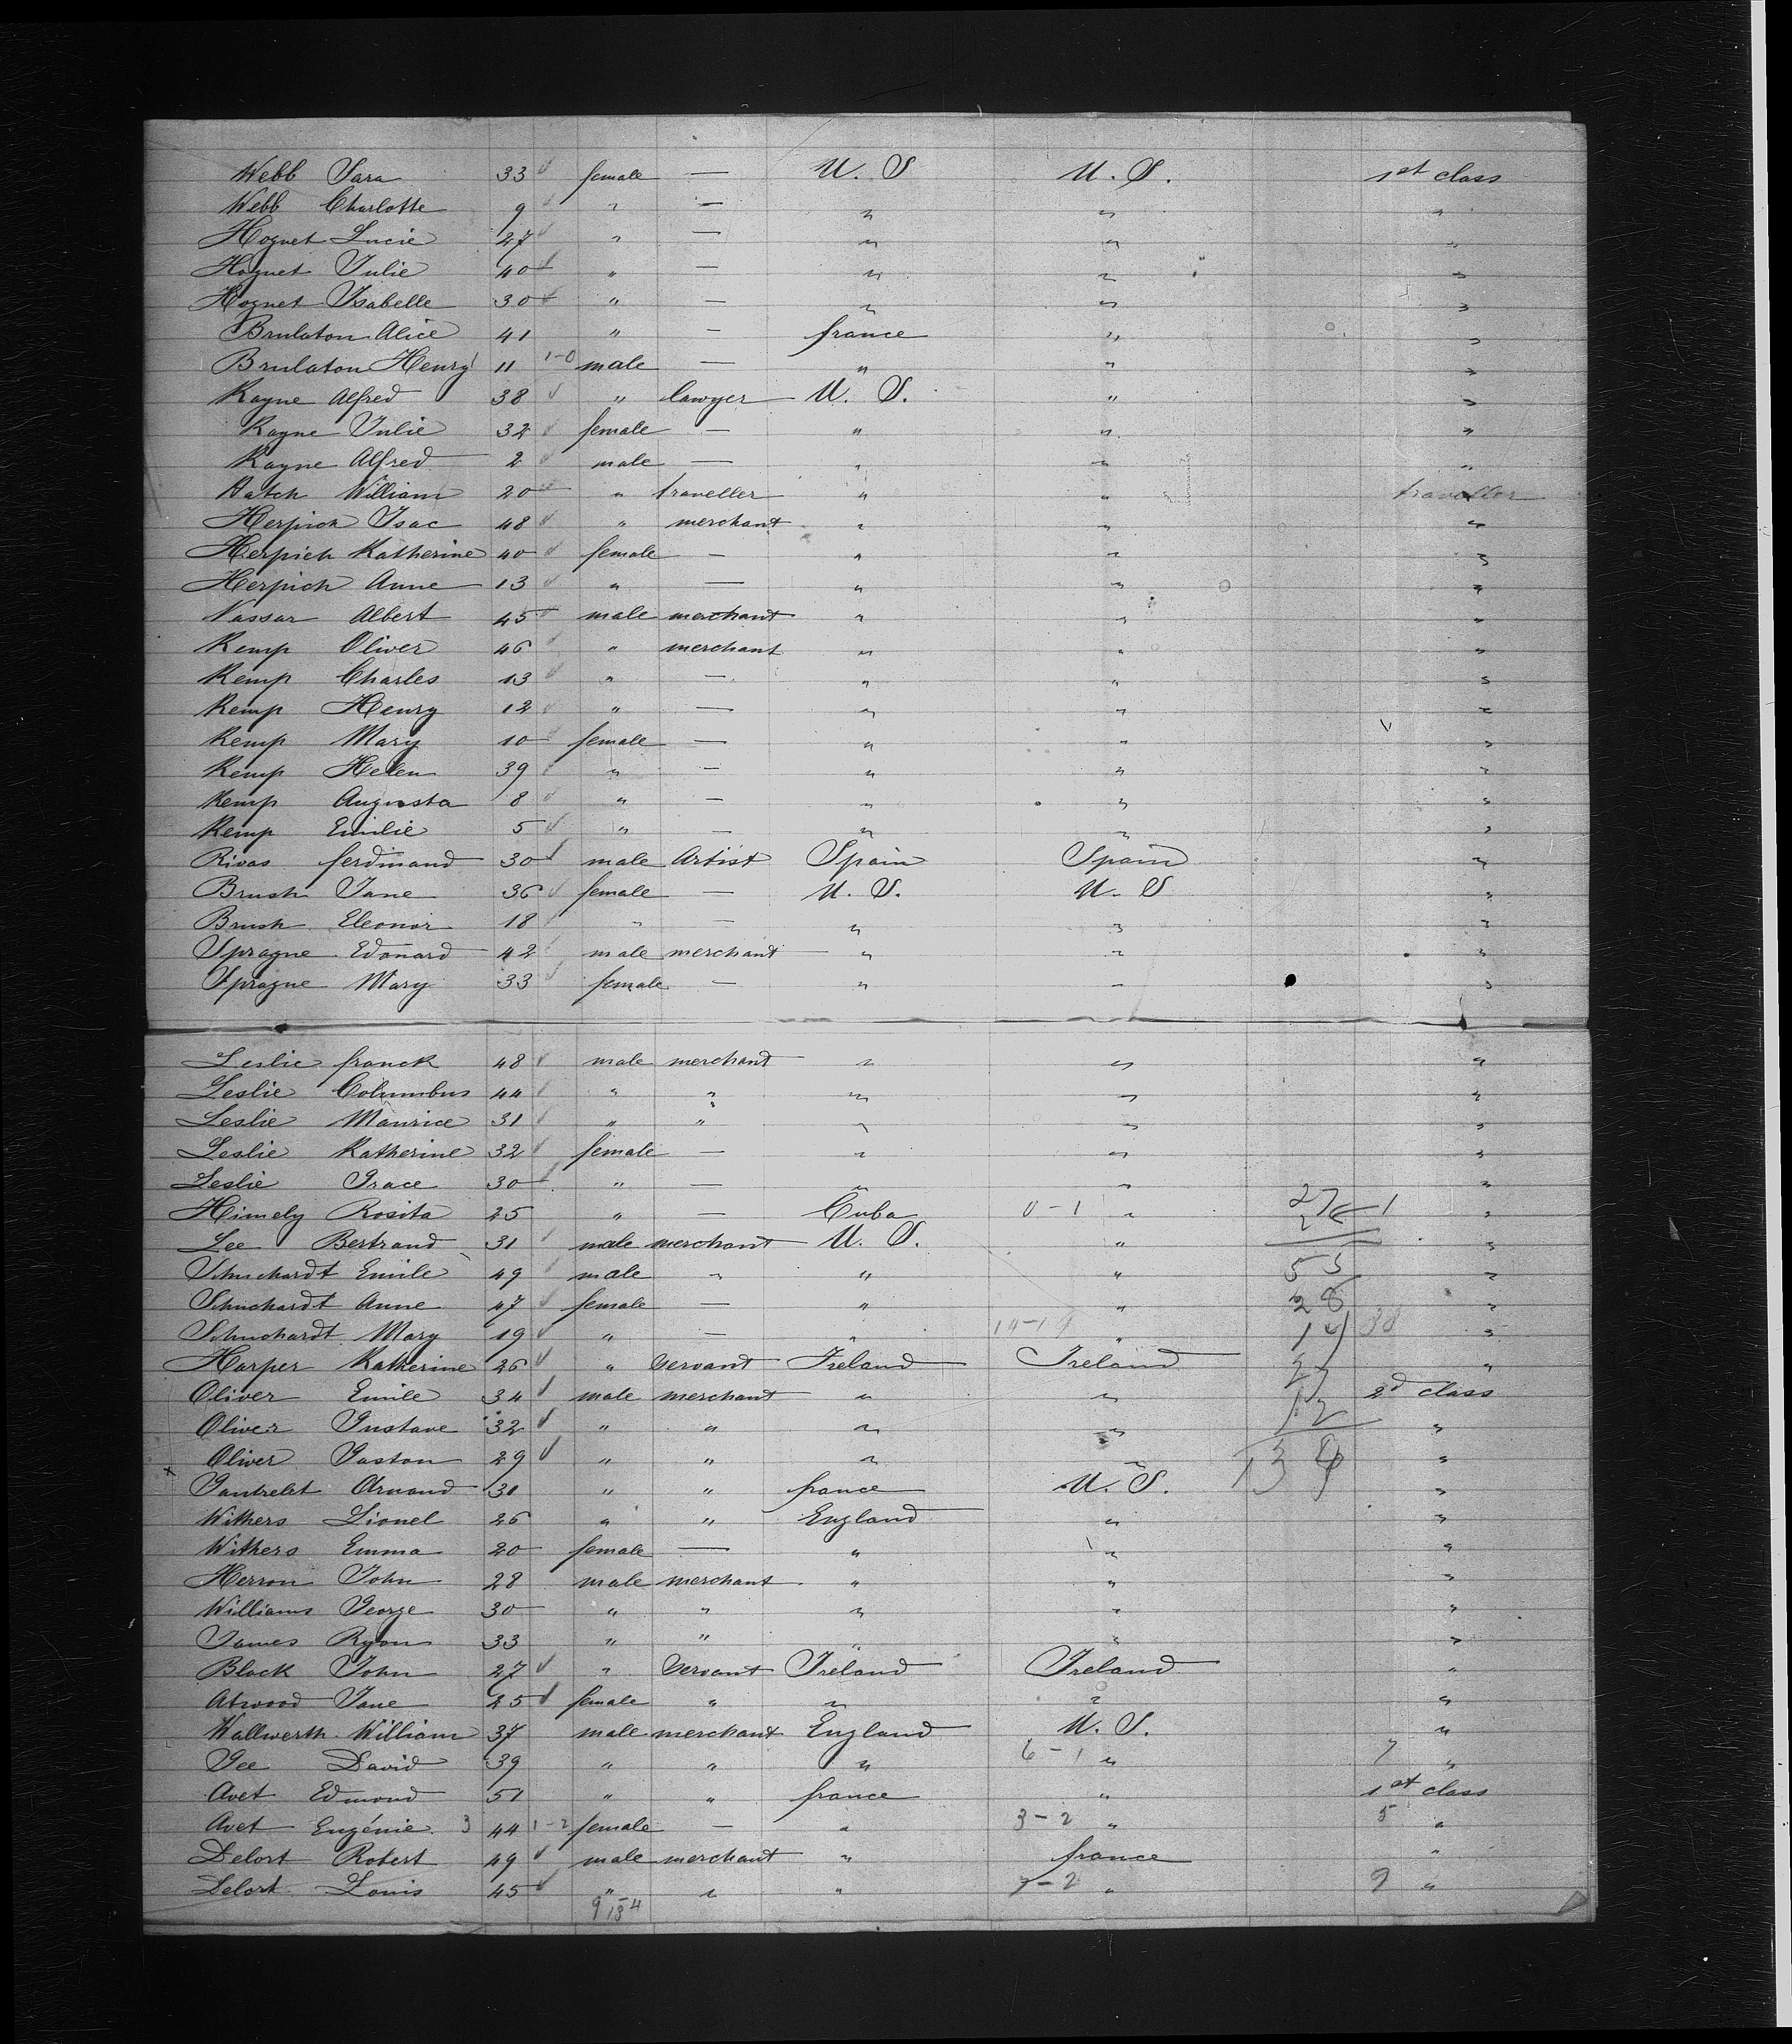 Webb Sara 33 female — U. S U. S. 1st class
Webb Charlotte 9 " — " " "
Hoguet Lucie 27 " — " " "
Hoguet Julie 40 " — " " "
Hoguet Isabelle 30 " — " " "
Brulaton Alice 41 " — france " "
Brulaton Henry 11 1-0 male — " " "
Kayne Alfred 38 " lawyer U. S. " "
Kayne Julie 32 female — " " "
Kayne Alfred 2 male — " " "
Hatch William 20 " traveller " " traveller
Herpich Isac 48 " merchant " " "
Herpich Katherine 40 female — " " "
Herpich Anne 13 " — " " "
Nassar Albert 45 male merchant " " "
Kemp Oliver 46 " merchant " " "
Kemp Charles 13 " — " " "
Kemp Henry 12 " — " " "
Kemp Mary 10 female — " " "
Kemp Helen 39 " — " " "
Kemp Augusta 8 " — " " "
Kemp Emilie 5 " — " " "
Rivas ferdinand 30 male Artist Spain Spain "
Brush Jane 36 female — U. S. U. S "
Brush Eleonor 18 " — " " "
Sprague Edouard 42 male merchant " " "
Sprague Mary 33 female — " " "
Leslie franck 48 male merchant " " "
Leslie Columbus 44 " " " " "
Leslie Maurice 31 " " " " "
Leslie Katherine 32 female — " " "
Leslie Grace 30 " — " " "
Himely Rosita 25 " — Cuba 0-1 " "
Lee Bertrand 31 male merchant U. S. " "
Schuchardt Emile 49 male " " " 55 "
Schuchardt Anne 47 female — " " 28 "
Schuchardt Mary 19 " — " 19-19 " 38 "
Harper Katherine 26 " servant Ireland Ireland 27 "
Oliver Emile 34 male merchant " " 12 2d class
Oliver Gustave 32 " " " " "
Oliver Gaston 29 " " " " "
Gautrelet Armand 31 " " france U. S. "
Withers Lionel 26 " " England " "
Withers Emma 20 female — " " "
Herron John 28 male merchant " " "
Williams George 30 " " " " "
James Ryon 33 " " " " "
Black John 27 " servant Ireland Ireland "
Atwood Jane 25 female " " " "
Wallwerth William 37 male merchant England U. S. "
Gee David 39 " " " 6-1 " 7 "
Avet Edmond 51 " " france " 1st class
Avet Eugénie 3 44 1-2 female — " 3-2 " 5 "
Delort Robert 49 male merchant " france "
Delort Louis 45 " " " 7-2 " 9 "